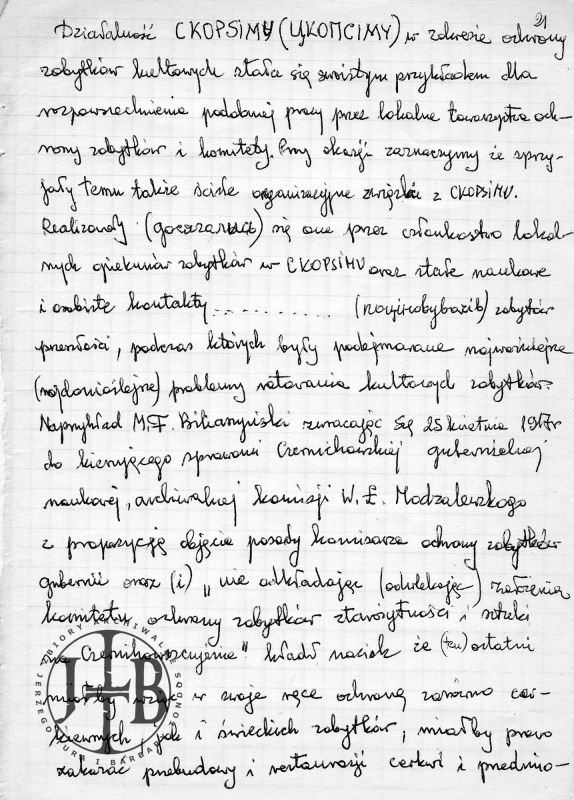 21
Działalność CKOPSiMU (ЦКОПСІМУ) w zakresie ochrony
zabytków kultowych stała się swoistym przykładem dla
rozpowszechnienia podobnej pracy przez lokalne towarzystwa och-
rony zabytków i komitety. Przy okazji zaznaczymy że sprzy-
jały temu także ścisłe organizacyjne związki z CKOPSiMU.
Realizowały się one przez członkostwo lokal-
nych opiekunów zabytków w CKOPSiMU oraz stałe naukowe
i osobiste kontakty ............ zabytków
przeszłości, podczas których były podejmowane najważniejsze
(najdonioślejsze) problemy ratowania kultowych zabytków.
Naprzykład M.F. Biliaszyński zwracając się 25 kwietnia 1917r
do kierującego sprawami Czernichowskiej gubernialnej
naukowej, archiwalnej komisji W. Ł. Modzalewskogo
z propozycją objęcia posady komisarza ochrony zabytków
gubernii oraz (i) „nie odkładając (odwlekając) założenia
komitetu ochrony zabytków starożytności i sztuki
na Czernihowszczyźnie" kładł nacisk że (ten) ostatni
miałby wziąć w swoje ręce ochronę zarówno cer-
kiewnych jak i świeckich zabytków, miałby prawo
zakazać przebudowy i restauracji cerkwi i przedmio-
ZBIORY ARCHIWALNE SONI
JERZEGO JURI I BARBARY
JTB